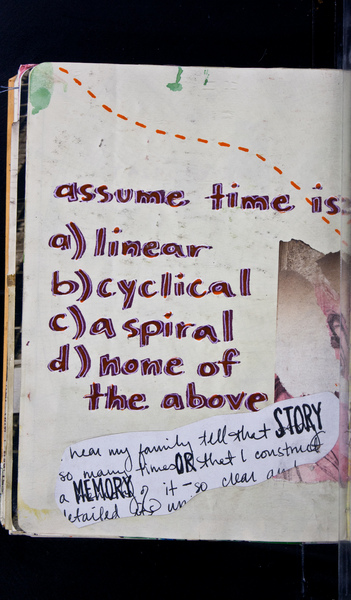 assume time is
a) linear
b) cyclical
c) a spiral
d) none of
the above
hear my family tell that STORY
so many times OR that I construct
a MEMORY of it - so clear and
detailed